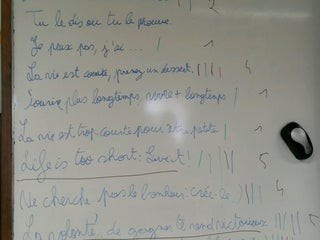 Tu le dis ou tu le prouve.
Je peux pas, j'ai ... / 1
La vie est courte, prenez un dessert. |||| 4
Sourire plus longtemps, vivre + longtemps / 1
La vie est trop courte pour être petite | 1
Life is too short: Live it! / |||| 5
(Ne cherche pas le bonheur: crée-le.) ||| 4
La volonté de gagner te rend victorieux.